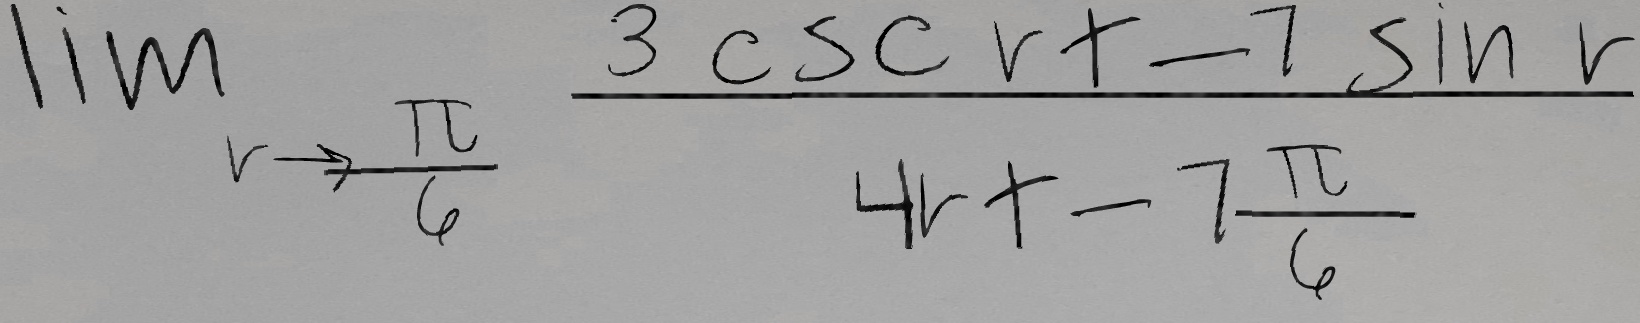 lim r→π/6 (3 csc r + -7 sin r)/(4r + -7 π/6)